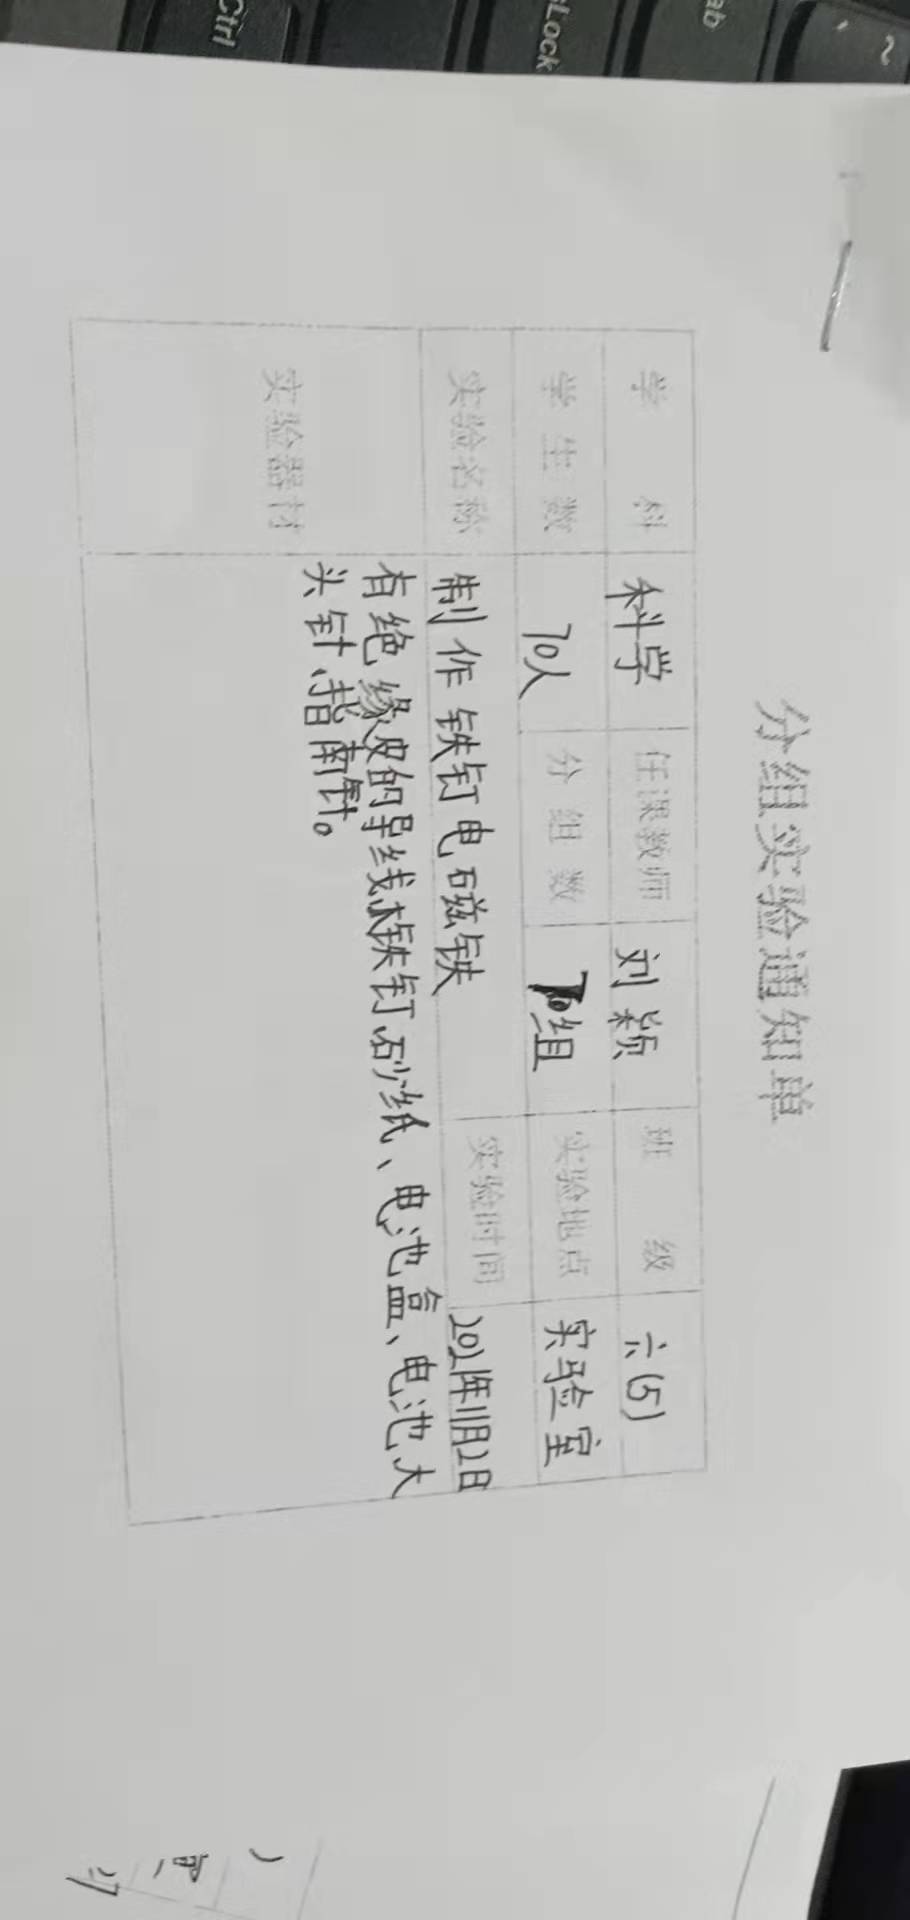 分组实验通知单
学 科 科学 任课教师 刘颖 班 级 六(5)
学生数 70人 分组数 组 实验地点 实验室
实验名称 制作铁钉电磁铁 实验时间 2021年11月2日
实验器材 有绝缘皮的导线、铁钉、砂纸、电池盒、电池大
头针、指南针。
Ctrl
sLock
ab
~